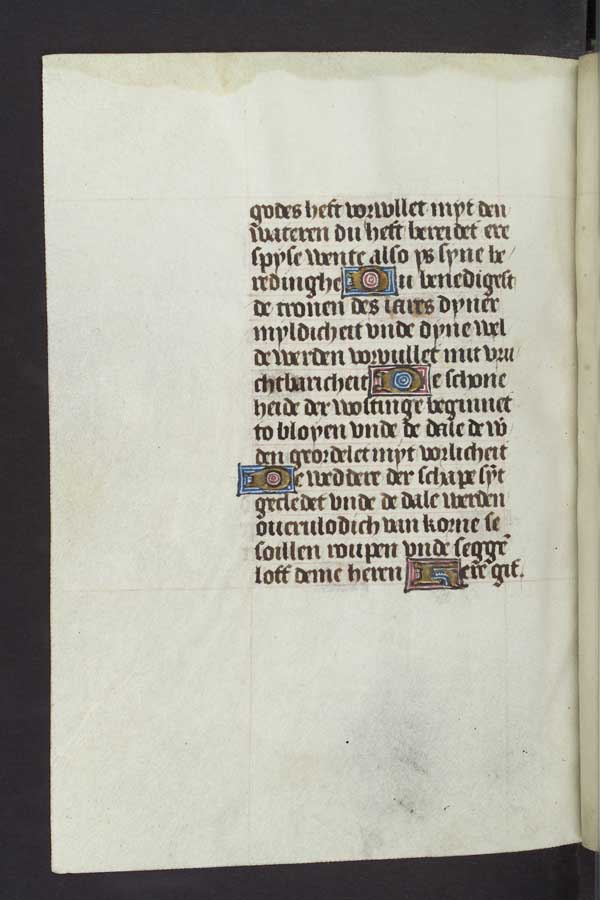 godes heft vorvullet myt den
wateren du heft bereidet ere
spyse wente also ys syne be
redinghe Du benedigest
de cronen des iares dyner
myldicheit vnde dyne vel
de werden vorvullet mit vru
chtbaricheit De schone
heide der wostinge beginnet
to bloyen vnde de dale de w̄
den geordelet myt vorlicheit
De weddere der schape sȳt
gecledet vnde de dale werden
ouerulodich van korne se
soillen roupen vnde seggē
loff deme heren Herē gif.